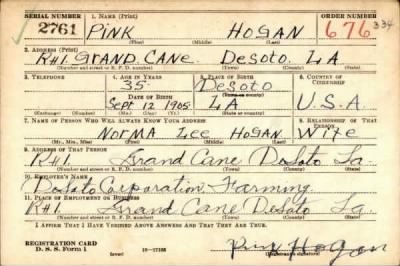 SERIAL NUMBER 1. NAME (Print) ORDER NUMBER
2761 PINK HOGAN 676 334
(First) (Middle) (Last)
2. ADDRESS (Print)
R#1. GRAND. CANE. DESOTO. LA
(Number and street or R. F. D. number) (Town) (County) (State)
3. TELEPHONE 4. AGE IN YEARS 5. PLACE OF BIRTH 6. COUNTRY OF CITIZENSHIP
35. DeSOTO
DATE OF BIRTH (Town or county)
Sept 12 1905 LA U.S.A.
(Exchange) (Number) (Mo.) (Day) (Yr.) (State or country)
7. NAME OF PERSON WHO WILL ALWAYS KNOW YOUR ADDRESS 8. RELATIONSHIP OF THAT PERSON
NORMA Lee HOGAN. Wife
(Mr., Mrs., Miss) (First) (Middle) (Last)
9. ADDRESS OF THAT PERSON
R#1. Grand Cane DeSoto La.
(Number and street or R. F. D. number) (Town) (County) (State)
10. EMPLOYER'S NAME
DeSoto Corporation. Farming.
11. PLACE OF EMPLOYMENT OR BUSINESS
R#1. Grand Cane DeSoto La.
(Number and street or R. F. D. number) (Town) (County) (State)
I AFFIRM THAT I HAVE VERIFIED ABOVE ANSWERS AND THAT THEY ARE TRUE.
REGISTRATION CARD
D. S. S. Form 1 (over) Pink Hogan